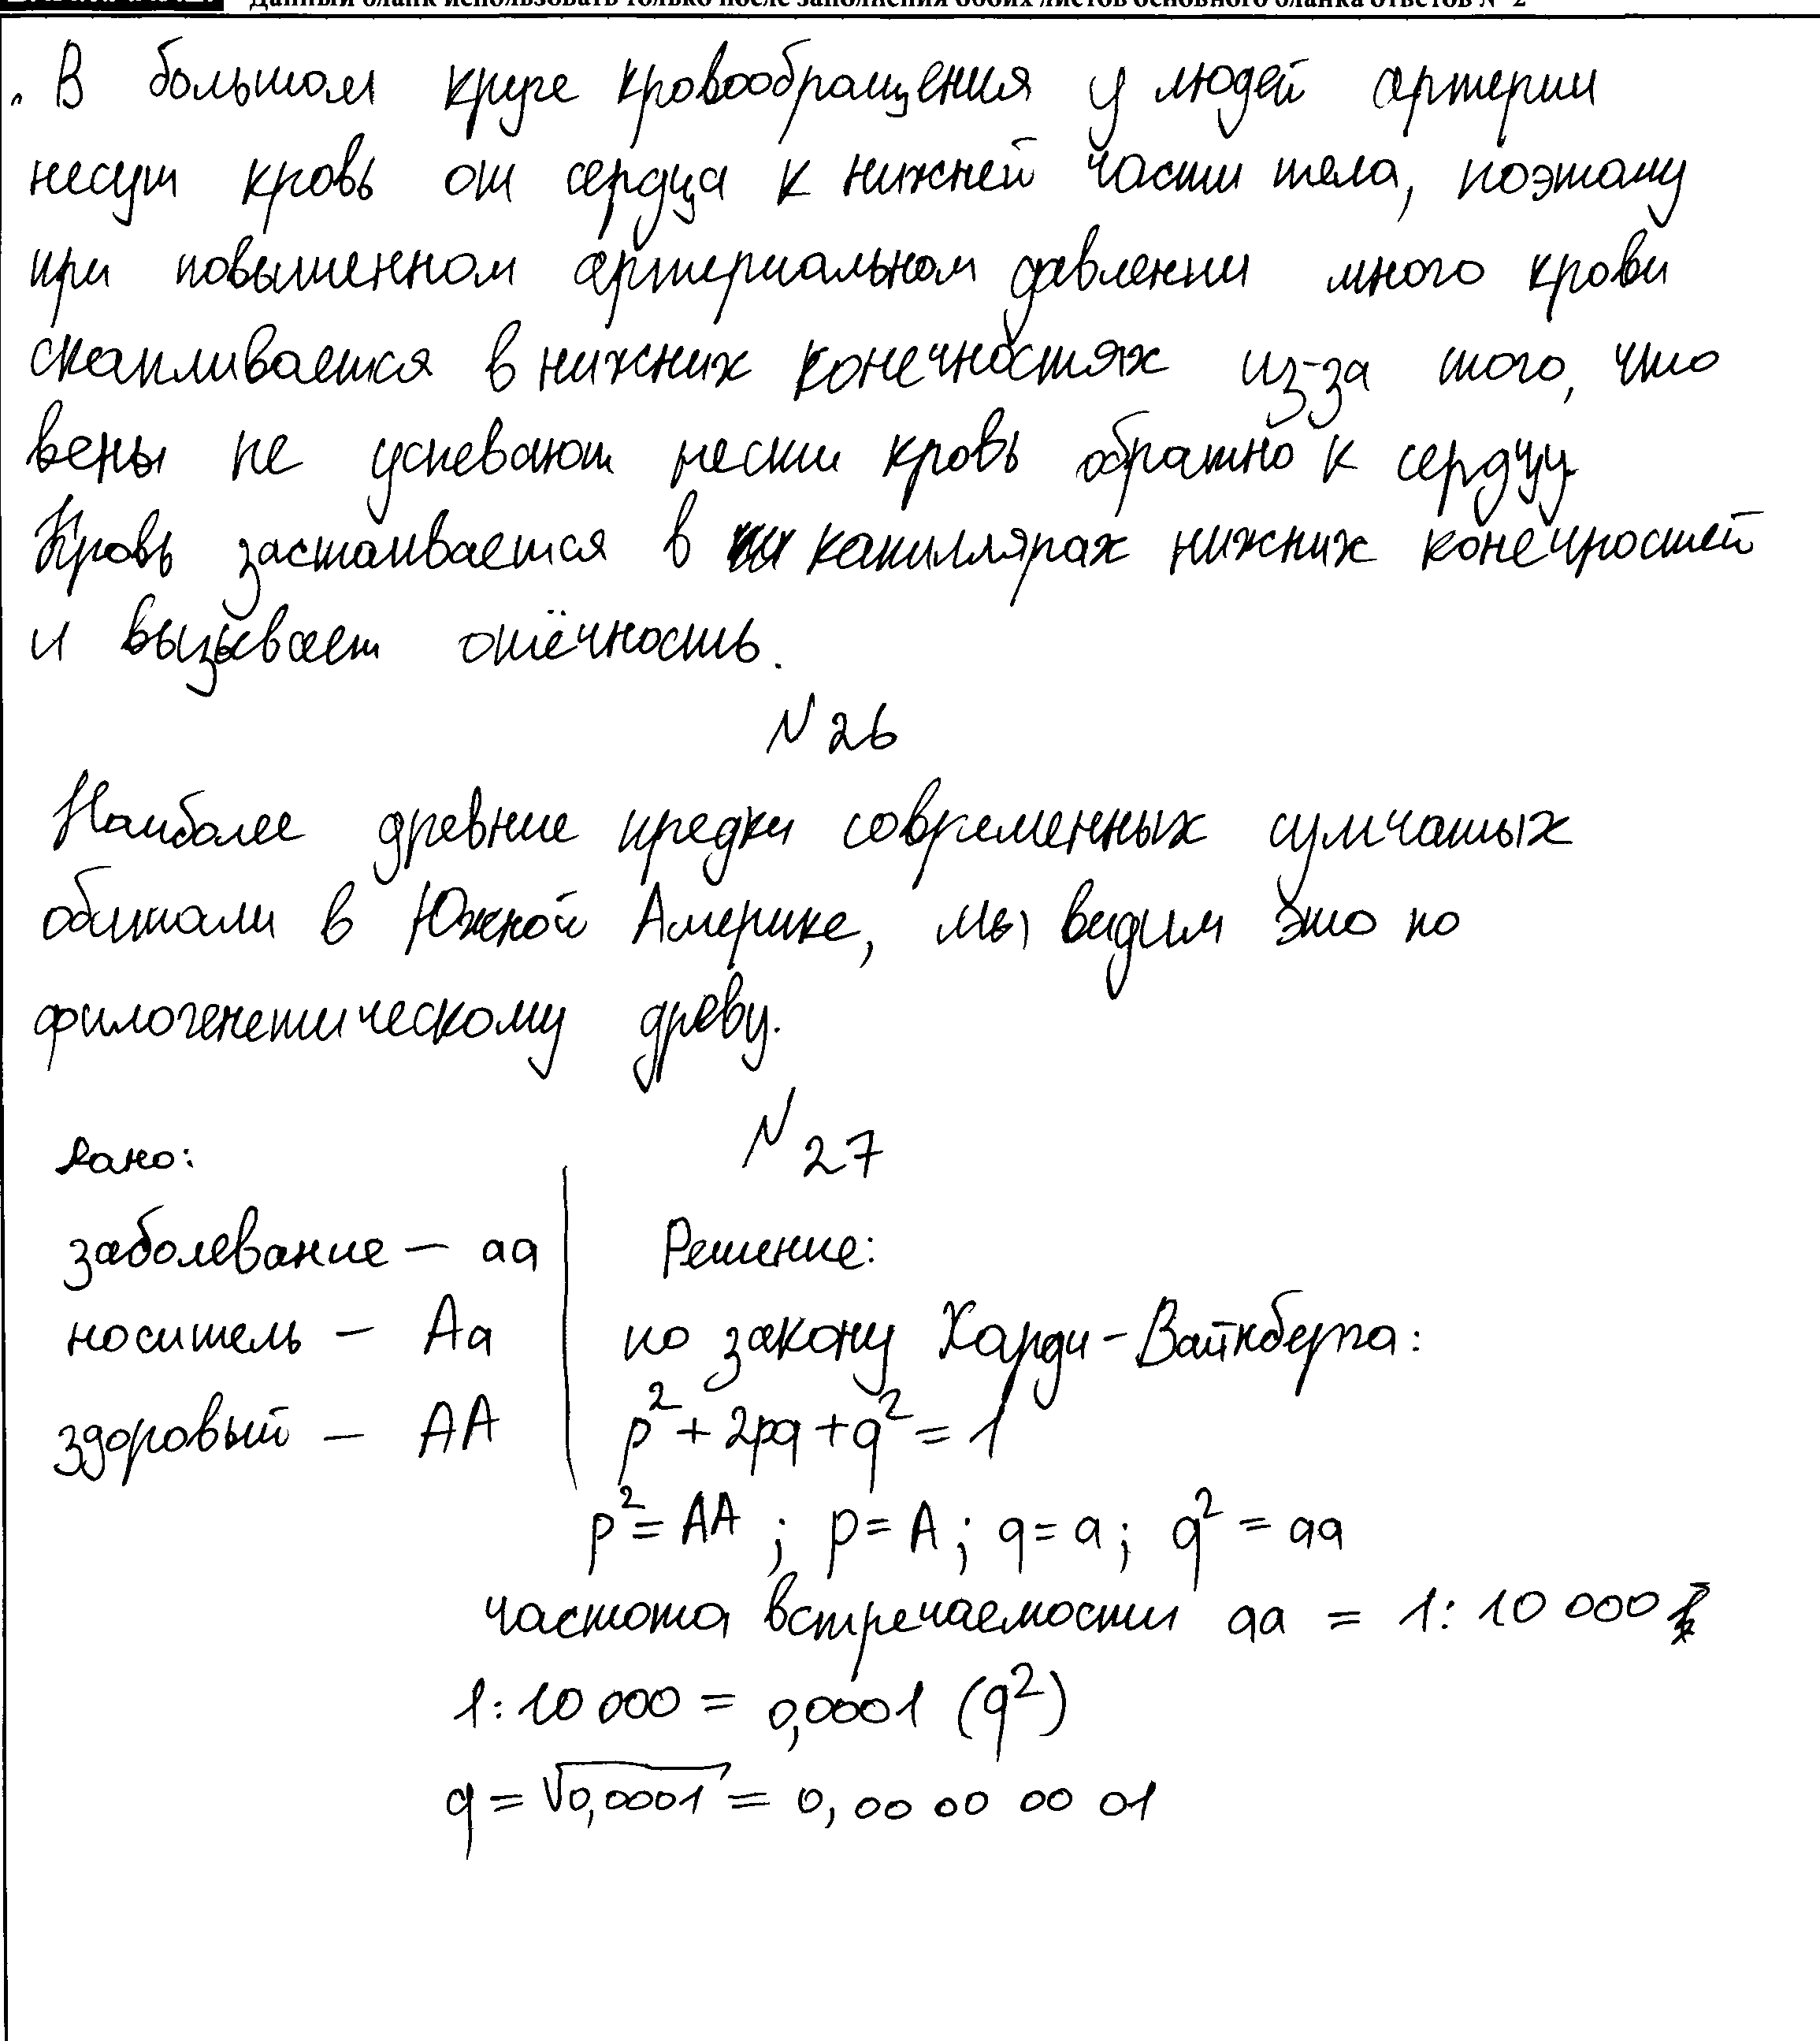 Данный бланк использовать только после заполнения обоих листов основного бланка ответов № 2
В большом круге кровообращения у людей артерии
несут кровь от сердца к нижней части тела, поэтому
при повышенном артериальном давлении много крови
скапливается в нижних конечностях из-за того, что
вены не успевают нести кровь обратно к сердцу
Кровь застаивается в капиллярах нижних конечностей
и вызывает отёчность.
N 26
Наиболее древние предки современных сумчатых
обитали в Южной Америке, мы видим это по
филогенетическому древу.
N 27
Дано:
заболевание – aa
Решение:
носитель – Aa
по закону Харди-Вайнберга:
здоровый – AA
p² + 2pq + q² = 1
p² = AA ; p = A ; q = a ; q² = aa
частота встречаемости aa = 1 : 10 000
1 : 10 000 = 0,0001 (q²)
q = √0,0001 = 0,00 00 00 01